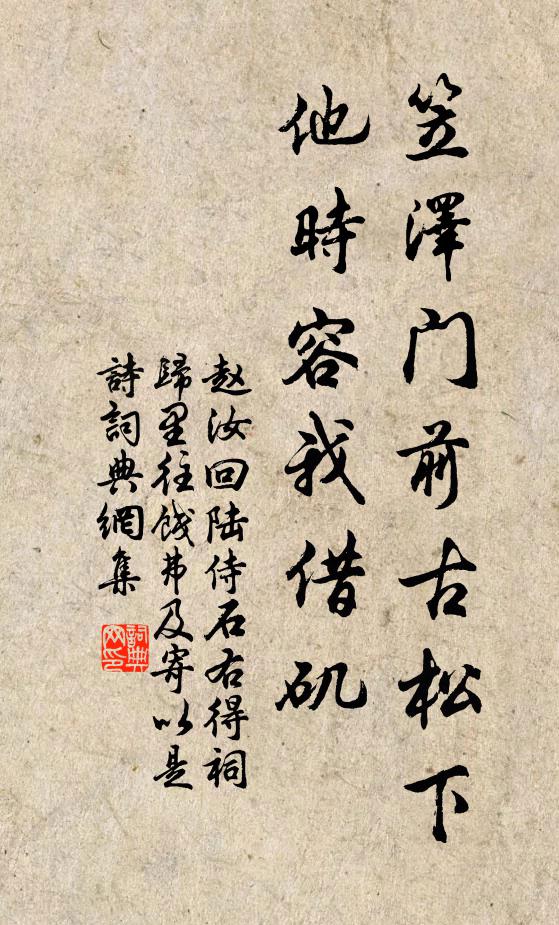 笠澤门前古松下
他時容我借矶
赵汝回陆侍石右得祠
歸里往饯弗及寄以是
詩詞典網集
詞典
网印